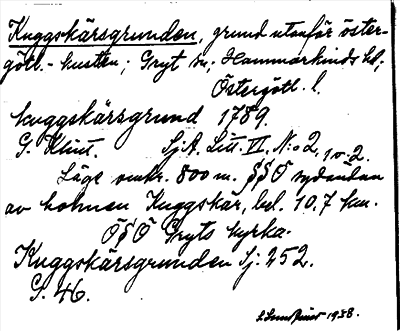 Kuggskärsgrunden, grund utanför öster-
götl.-kusten; Gryt sn; Hammarkinds hd;
Östergötl. l.
kuggskärsgrund 1789.
G. Klint. Sj.A. Litt. VI, N:o 2, 1 o. 2.
Läge omkr. 800 m. SSO sydändan
av holmen Kuggskär, bel. 10,7 km.
OSO Gryts kyrka.
Kuggskärsgrunden Sj: 252.
G. 46.
1938.